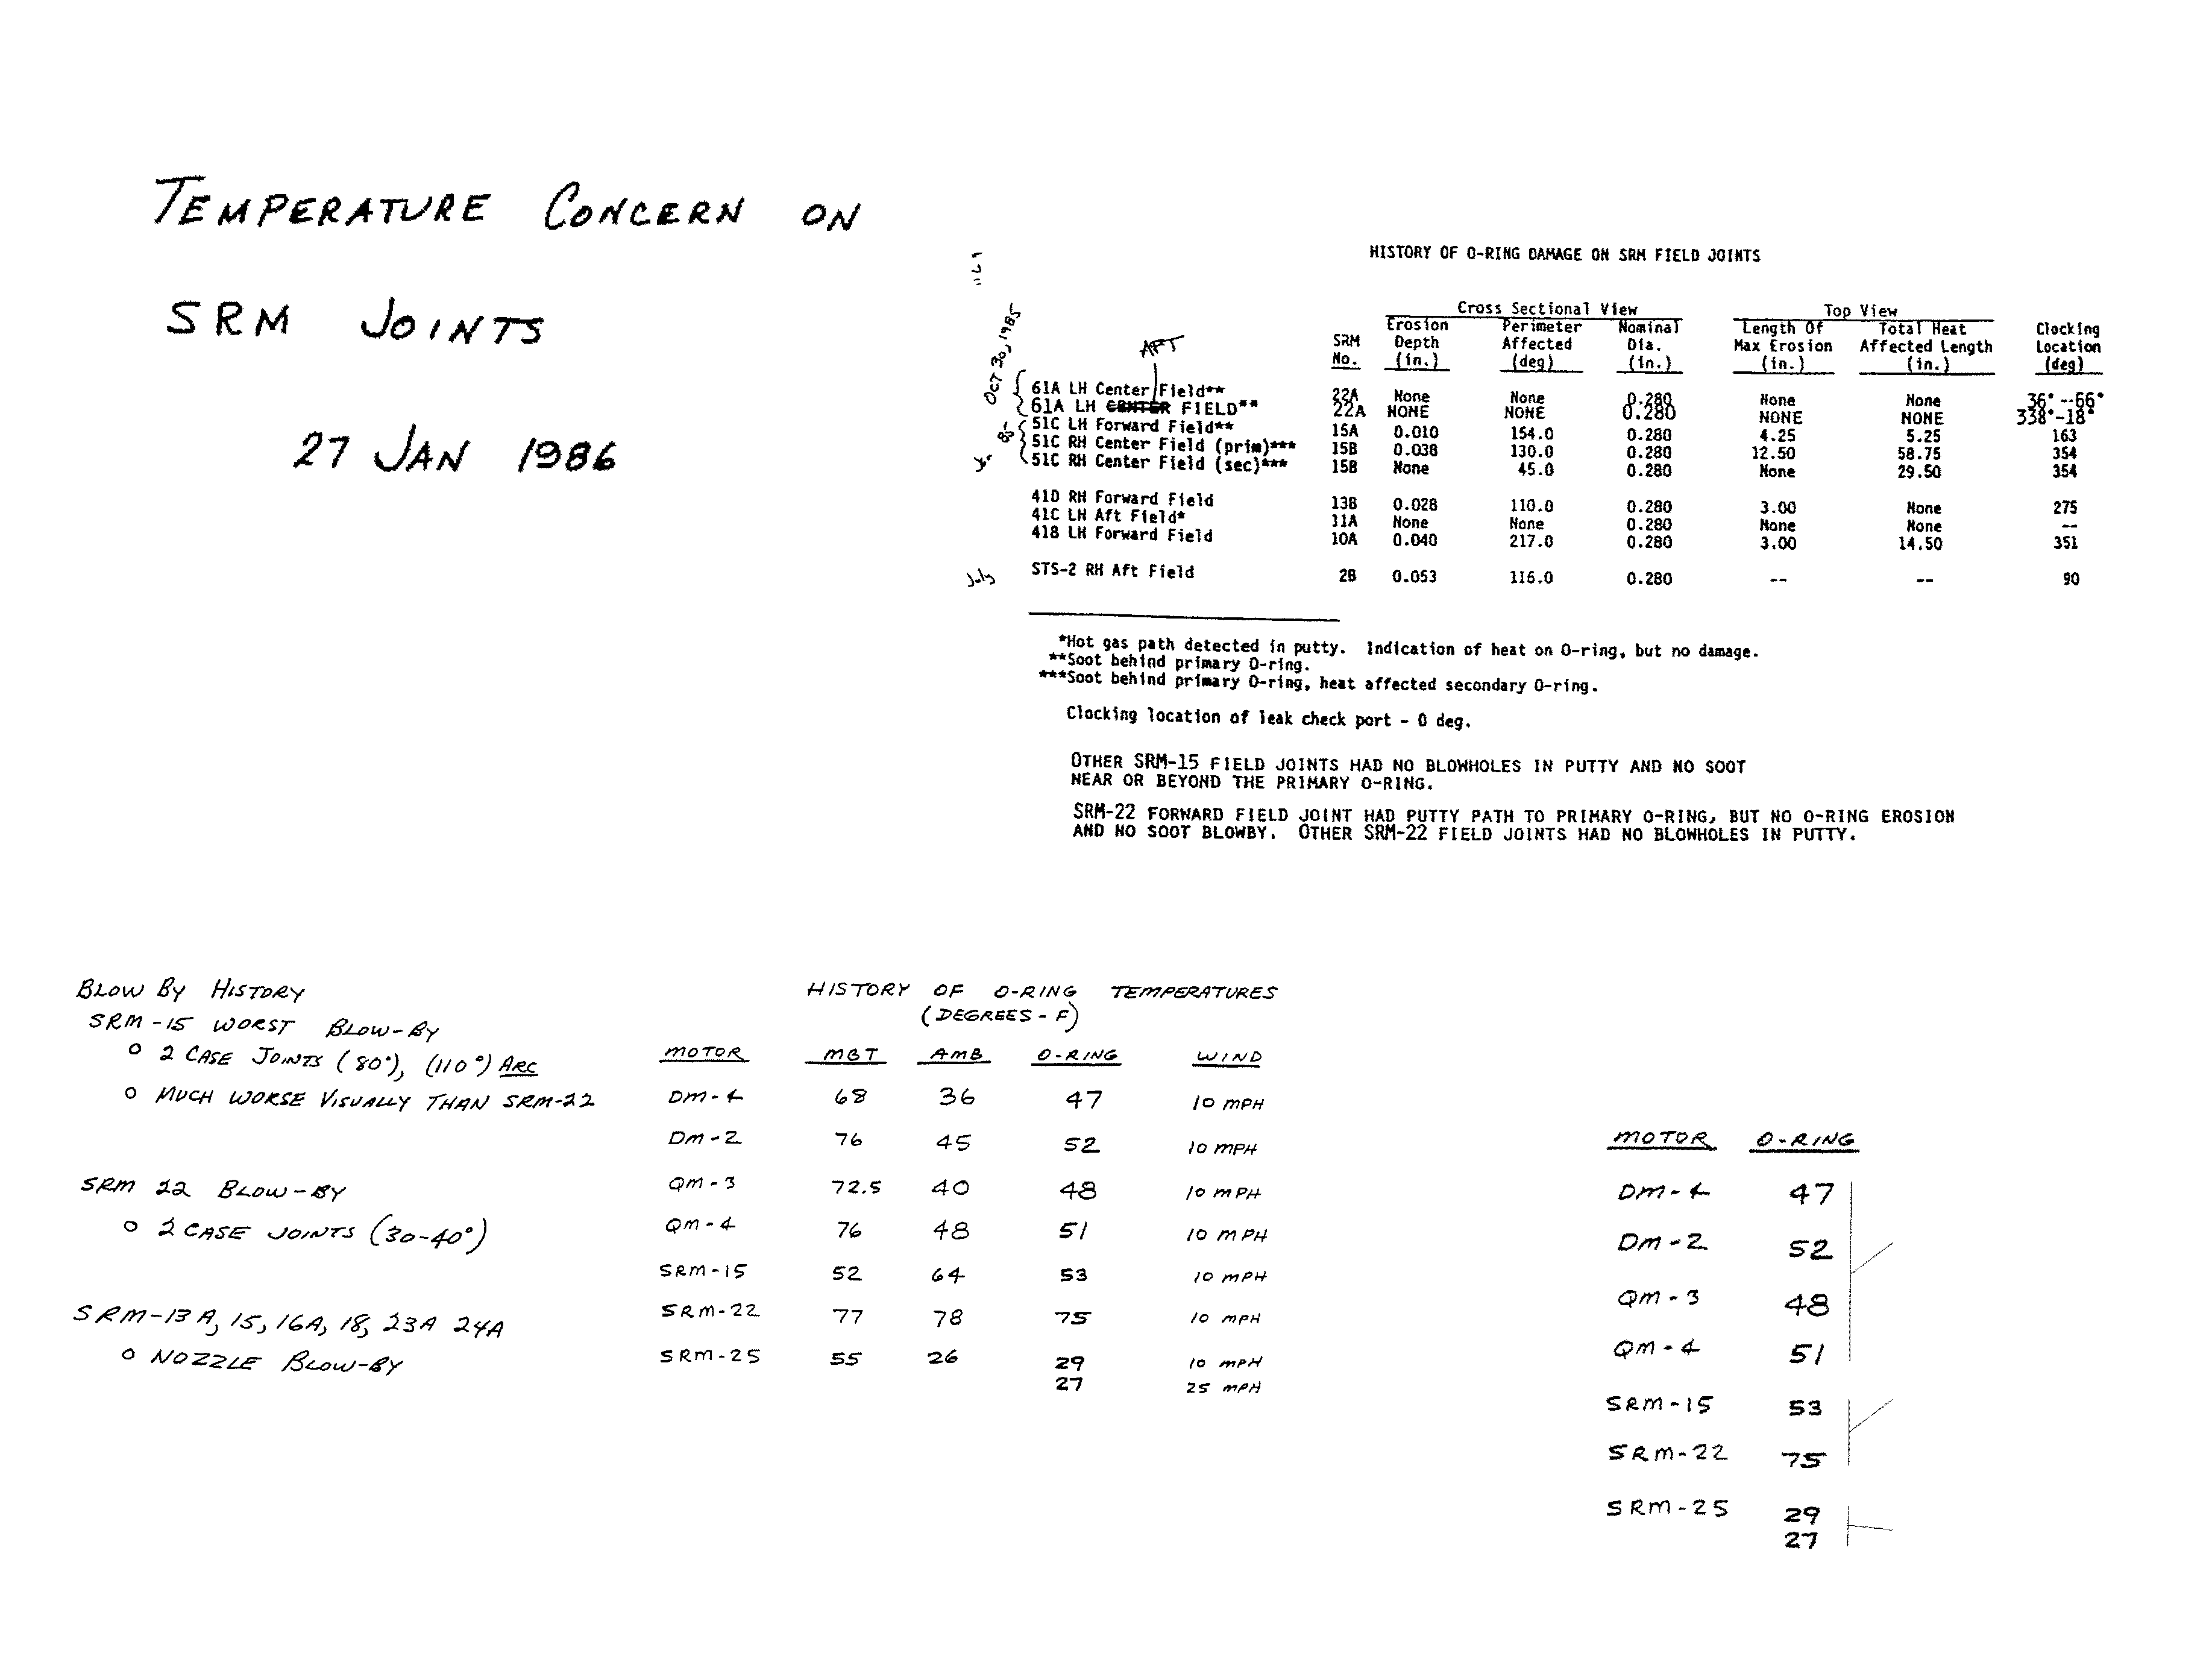 TEMPERATURE CONCERN ON
SRM JOINTS
27 JAN 1986
HISTORY OF O-RING DAMAGE ON SRM FIELD JOINTS
Cross Sectional View Top View
SRM No. Erosion Depth (in.) Perimeter Affected (deg) Nominal Dia. (in.) Length Of Max Erosion (in.) Total Heat Affected Length (in.) Clocking Location (deg)
OCT 30, 1985
AFT
61A LH Center Field** 22A None None 0.280 None None 36°--66°
61A LH CENTER FIELD** 22A NONE NONE 0.280 NONE NONE 338°-18°
51C LH Forward Field** 15A 0.010 154.0 0.280 4.25 5.25 163
51C RH Center Field (prim)*** 15B 0.038 130.0 0.280 12.50 58.75 354
51C RH Center Field (sec)*** 15B None 45.0 0.280 None 29.50 354
41D RH Forward Field 13B 0.028 110.0 0.280 3.00 None 275
41C LH Aft Field* 11A None None 0.280 None None --
41B LH Forward Field 10A 0.040 217.0 0.280 3.00 14.50 351
July
STS-2 RH Aft Field 2B 0.053 116.0 0.280 -- -- 90
*Hot gas path detected in putty. Indication of heat on O-ring, but no damage.
**Soot behind primary O-ring.
***Soot behind primary O-ring, heat affected secondary O-ring.
Clocking location of leak check port - 0 deg.
OTHER SRM-15 FIELD JOINTS HAD NO BLOWHOLES IN PUTTY AND NO SOOT
NEAR OR BEYOND THE PRIMARY O-RING.
SRM-22 FORWARD FIELD JOINT HAD PUTTY PATH TO PRIMARY O-RING, BUT NO O-RING EROSION
AND NO SOOT BLOWBY. OTHER SRM-22 FIELD JOINTS HAD NO BLOWHOLES IN PUTTY.
BLOW BY HISTORY
SRM-15 WORST BLOW-BY
o 2 CASE JOINTS (80°), (110°) ARC
o MUCH WORSE VISUALLY THAN SRM-22
SRM 22 BLOW-BY
o 2 CASE JOINTS (30-40°)
SRM-13A, 15, 16A, 18, 23A 24A
o NOZZLE BLOW-BY
HISTORY OF O-RING TEMPERATURES
(DEGREES-F)
MOTOR MBT AMB O-RING WIND
DM-4 68 36 47 10 MPH
DM-2 76 45 52 10 MPH
QM-3 72.5 40 48 10 MPH
QM-4 76 48 51 10 MPH
SRM-15 52 64 53 10 MPH
SRM-22 77 78 75 10 MPH
SRM-25 55 26 29 10 MPH
27 25 MPH
MOTOR O-RING
DM-4 47
DM-2 52
QM-3 48
QM-4 51
SRM-15 53
SRM-22 75
SRM-25 29
27